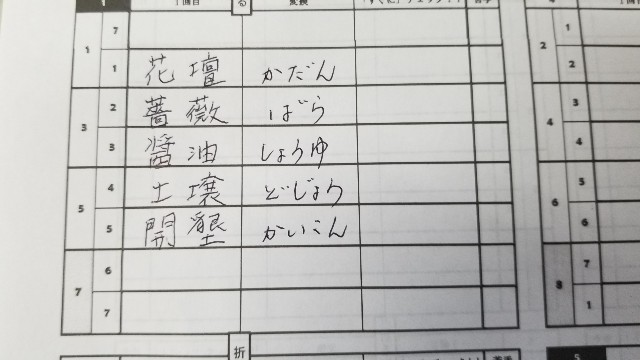 1 1回目 る 変換 書字 1回
1 7 2 1
1 花壇 かだん 2
3 2 薔薇 ばら 4 3
3 醤油 しょうゆ 4
5 4 土壌 どじょう 6 5
5 開墾 かいこん 6
7 6 8 7
7 1
折 5